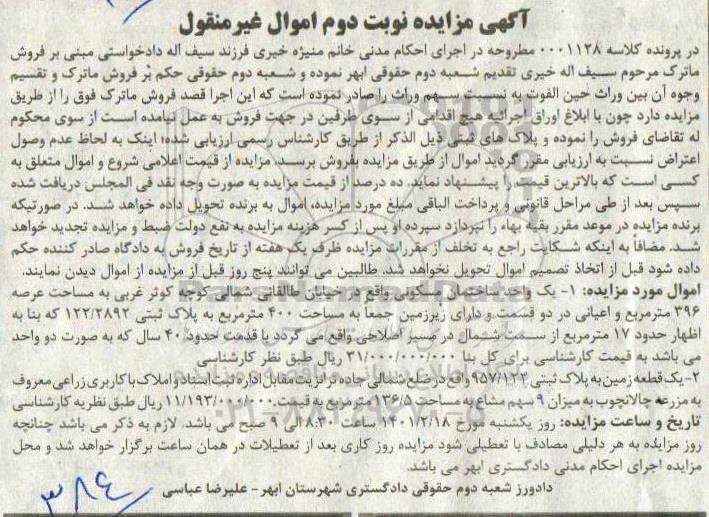 آگهی مزایده نوبت دوم اموال غیرمنقول
در پرونده کلاسه ۰۰۰۱۱۲۸ مطروحه در اجرای احکام مدنی خانم منیژه خیری فرزند سیف اله دادخواستی مبنی بر فروش
ماترک مرحوم سیف اله خیری تقدیم شعبه دوم حقوقی ابهر نموده و شعبه دوم حقوقی حکم بُر فروش ماترک و تقسیم
وجوه آن بین وراث حین الفوت به نسبت سهم وراث را صادر نموده است که این اجرا قصد فروش ماترک فوق را از طریق
مزایده دارد چون با ابلاغ اوراق اجرائیه هیچ اقدامی از سوی طرفین در جهت فروش به عمل نیامده است از سوی محکوم
له تقاضای فروش را نموده و پلاک های ثبتی ذیل الذکر از طریق کارشناس رسمی ارزیابی شده؛ اینک به لحاظ عدم وصول
اعتراض نسبت به ارزیابی مقرر گردید اموال از طریق مزایده بفروش برسد. مزایده از قیمت اعلامی شروع و اموال متعلق به
کسی است که بالاترین قیمت را پیشنهاد نماید. ده درصد از قیمت مزایده به صورت وجه نقد فی المجلس دریافت شده
سپس بعد از طی مراحل قانونی و پرداخت الباقی مبلغ مورد مزایده، اموال به برنده تحویل داده خواهد شد. در صورتیکه
برنده مزایده در موعد مقرر بقیه بهاء را نپردازد سپرده او پس از کسر هزینه مزایده به نفع دولت ضبط و مزایده تجدید خواهد
شد. مضافاً به اینکه شکایت راجع به تخلف از مقررات مزایده ظرف یک هفته از تاریخ فروش به دادگاه صادر کننده حکم
داده شود قبل از اتخاذ تصمیم اموال تحویل نخواهد شد. طالبین می توانند پنج روز قبل از مزایده از اموال دیدن نمایند.
اموال مورد مزایده: ۱- یک واحد ساختمان مسکونی واقع در خیابان طالقانی شمالی کوچه کوثر غربی به مساحت عرصه
۳۹۶ مترمربع و اعیانی در دو قسمت و دارای زیرزمین جمعاً به مساحت ۴۰۰ مترمربع به پلاک ثبتی ۱۲۲/۲۸۹۲ که بنا به
اظهار حدود ۱۷ مترمربع از سمت شمال در مسیر اصلاحی واقع می گردد با قدمت حدود ۴۰ سال که به صورت دو واحد
می باشد به قیمت کارشناسی برای کل بنا ۳۱/۰۰۰/۰۰۰/۰۰۰ ریال طبق نظر کارشناسی
۲- یک قطعه زمین به پلاک ثبتی ۹۵۷/۱۲۲ واقع در ضلع شمالی جاده ترانزیت مقابل اداره ثبت اسناد و املاک با کاربری زراعی معروف
به مزرعه چالانچوب به میزان ۹ سهم مشاع به مساحت ۱۳۶/۵ مترمربع به قیمت ۱۱/۱۹۳/۰۰۰/۰۰۰ ریال طبق نظریه کارشناسی
تاریخ و ساعت مزایده: روز یکشنبه مورخ ۱۴۰۱/۲/۱۸ ساعت ۸:۳۰ الی ۹ صبح می باشد. لازم به ذکر می باشد چنانچه
روز مزایده به هر دلیلی مصادف با تعطیلی شود مزایده روز کاری بعد از تعطیلات در همان ساعت برگزار خواهد شد و محل
مزایده اجرای احکام مدنی دادگستری ابهر می باشد.
دادورز شعبه دوم حقوقی دادگستری شهرستان ابهر - علیرضا عباسی